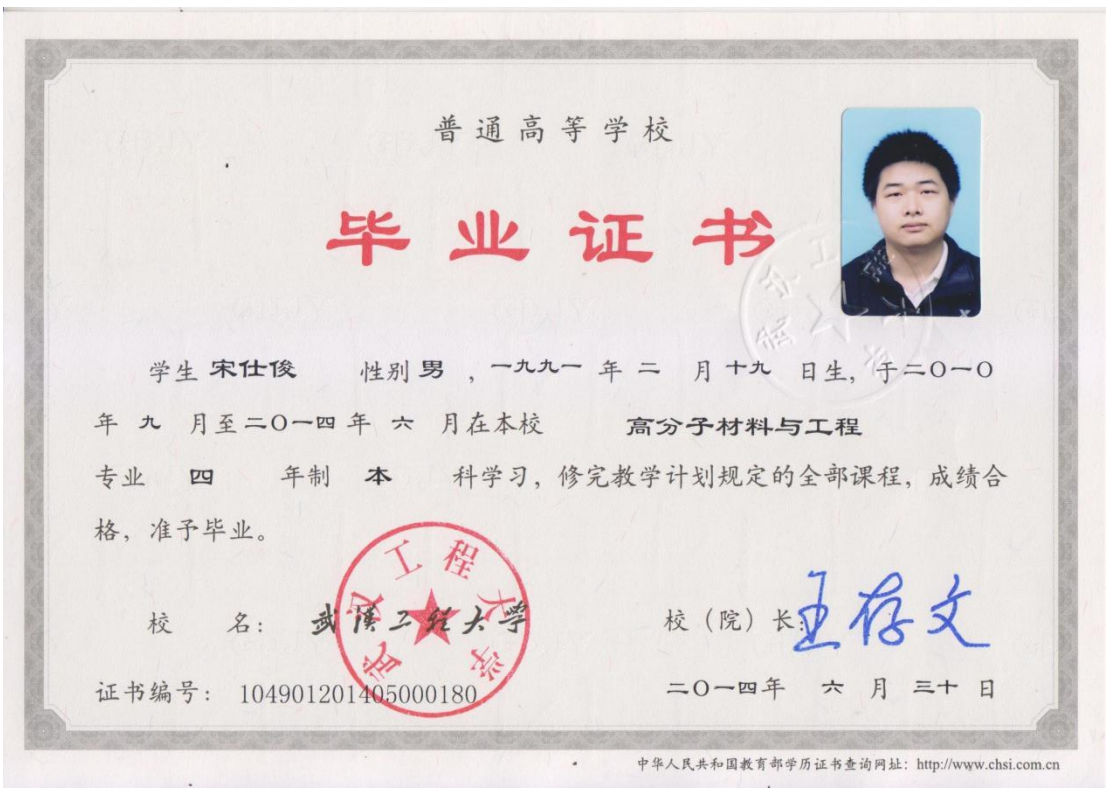 普通高等学校
毕业证书
学生 宋仕俊 性别 男 ，一九九一 年 二 月 十九 日生，于二〇一〇
年 九 月至二〇一四年 六 月在本校 高分子材料与工程
专业 四 年制 本 科学习，修完教学计划规定的全部课程，成绩合
格，准予毕业。
武汉工程大学
校 名： 武漢工程大学
校（院）长：王存文
证书编号： 104901201405000180
二〇一四年 六 月 三十 日
中华人民共和国教育部学历证书查询网址：http://www.chsi.com.cn